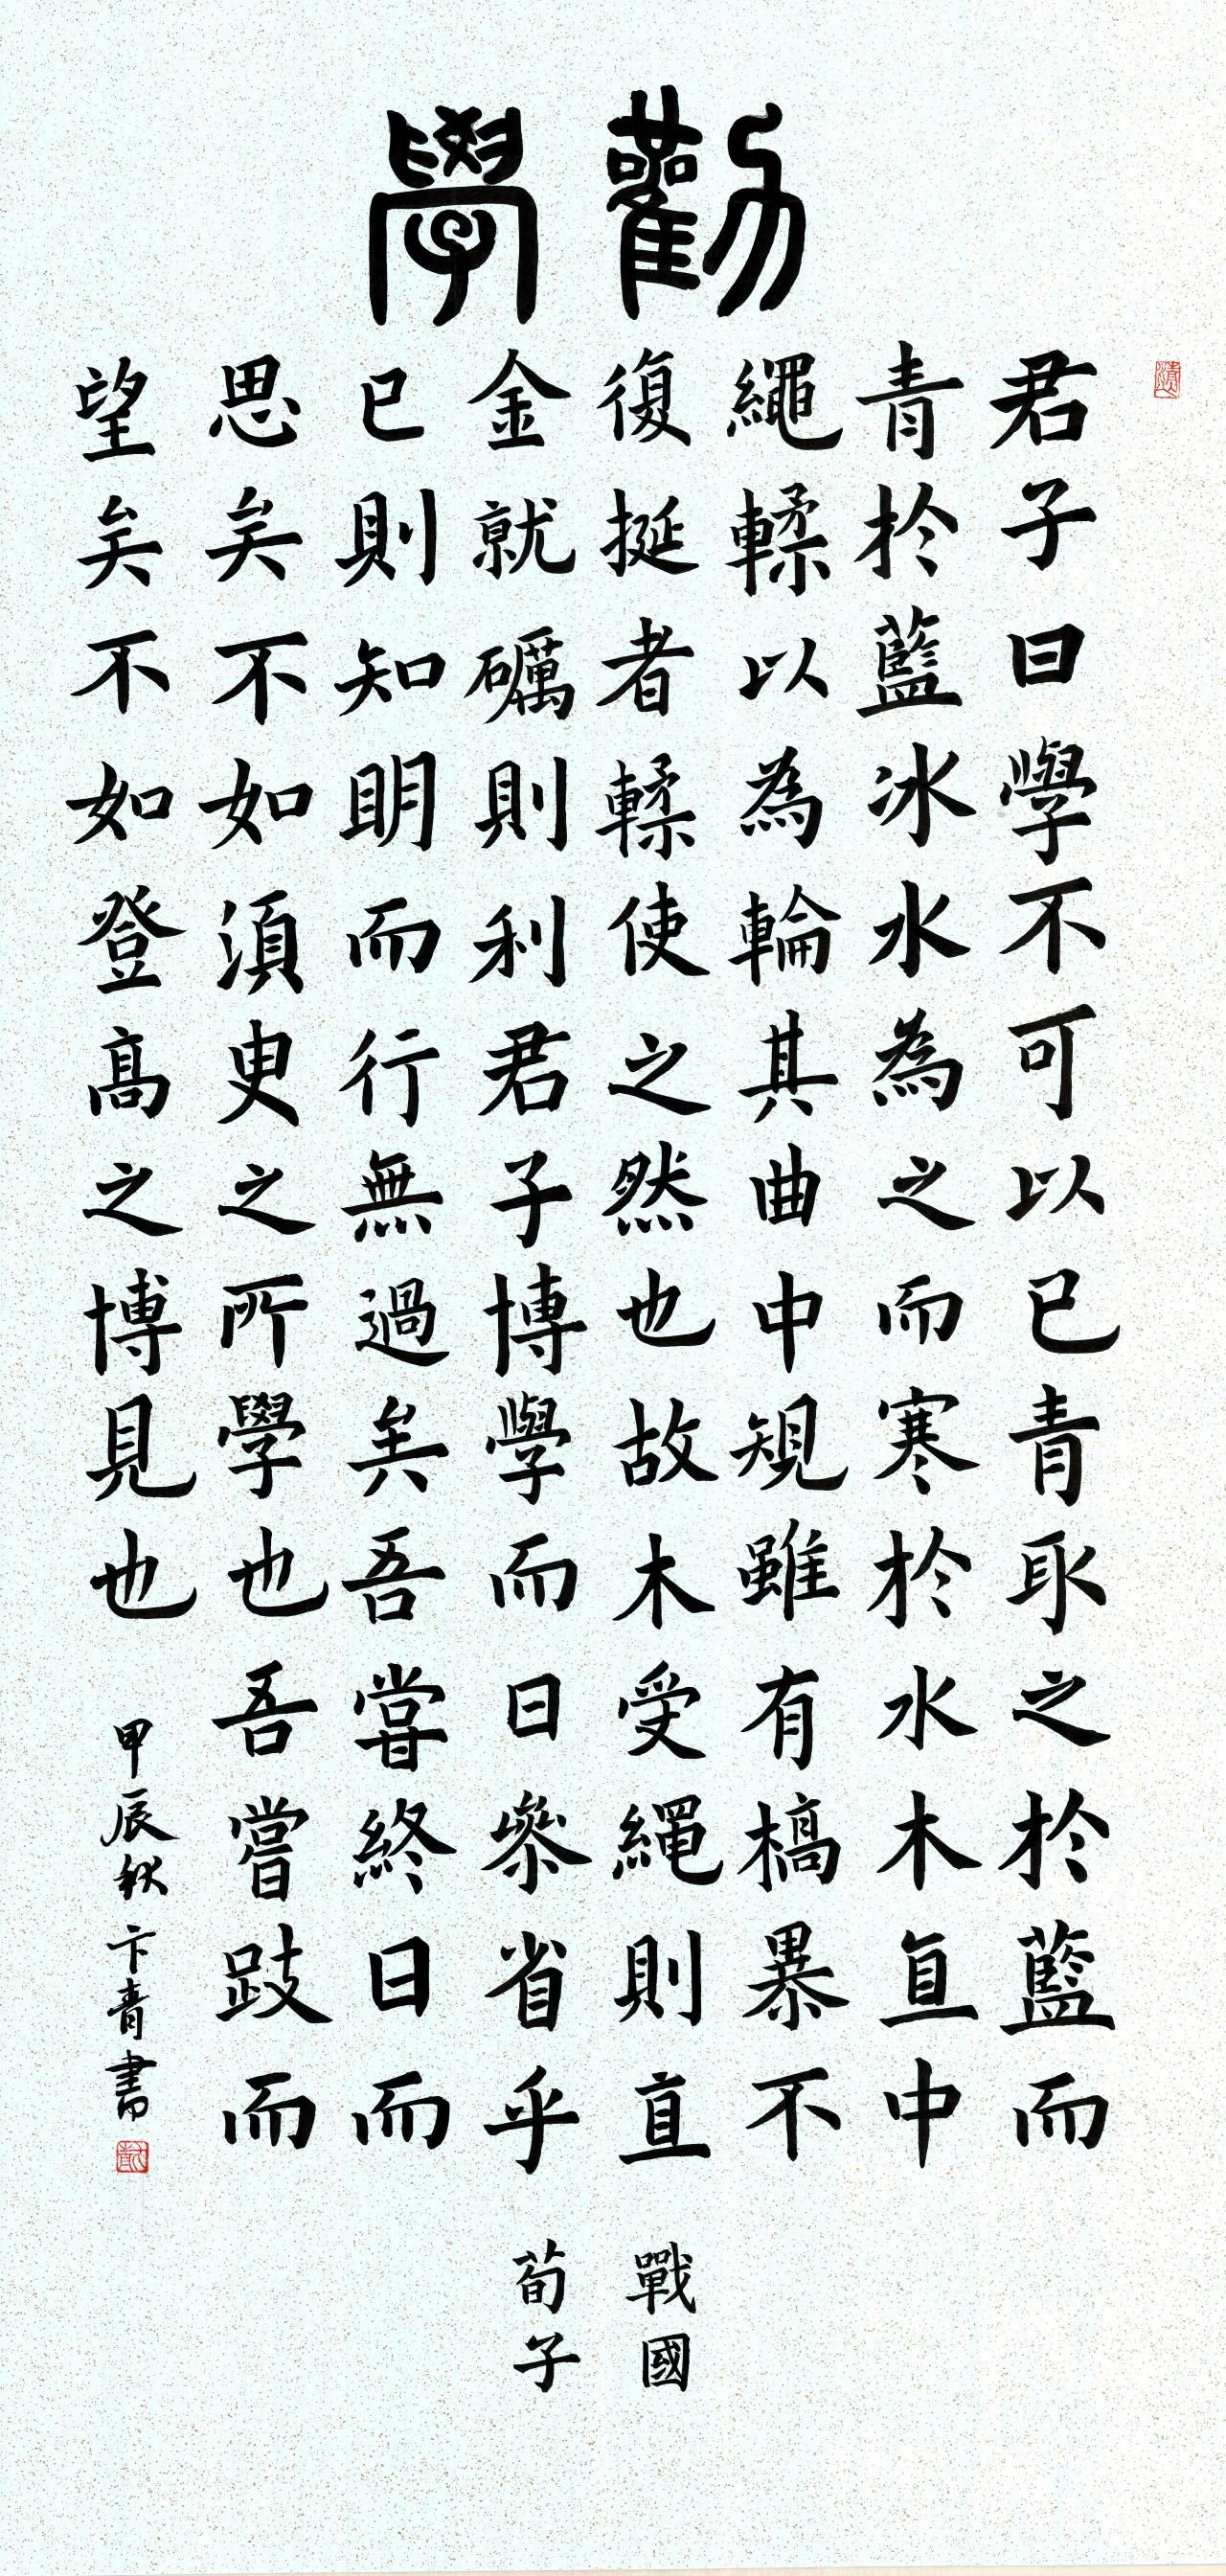 勸學
君子曰學不可以已青取之於藍而
青於藍冰水為之而寒於水木直中
繩輮以為輪其曲中規雖有槁暴不
復挺者輮使之然也故木受繩則直
金就礪則利君子博學而日參省乎
已則知明而行無過矣吾嘗終日而
思矣不如須臾之所學也吾嘗跂而
望矣不如登高之博見也
甲辰秋卞青書
戰國
荀子